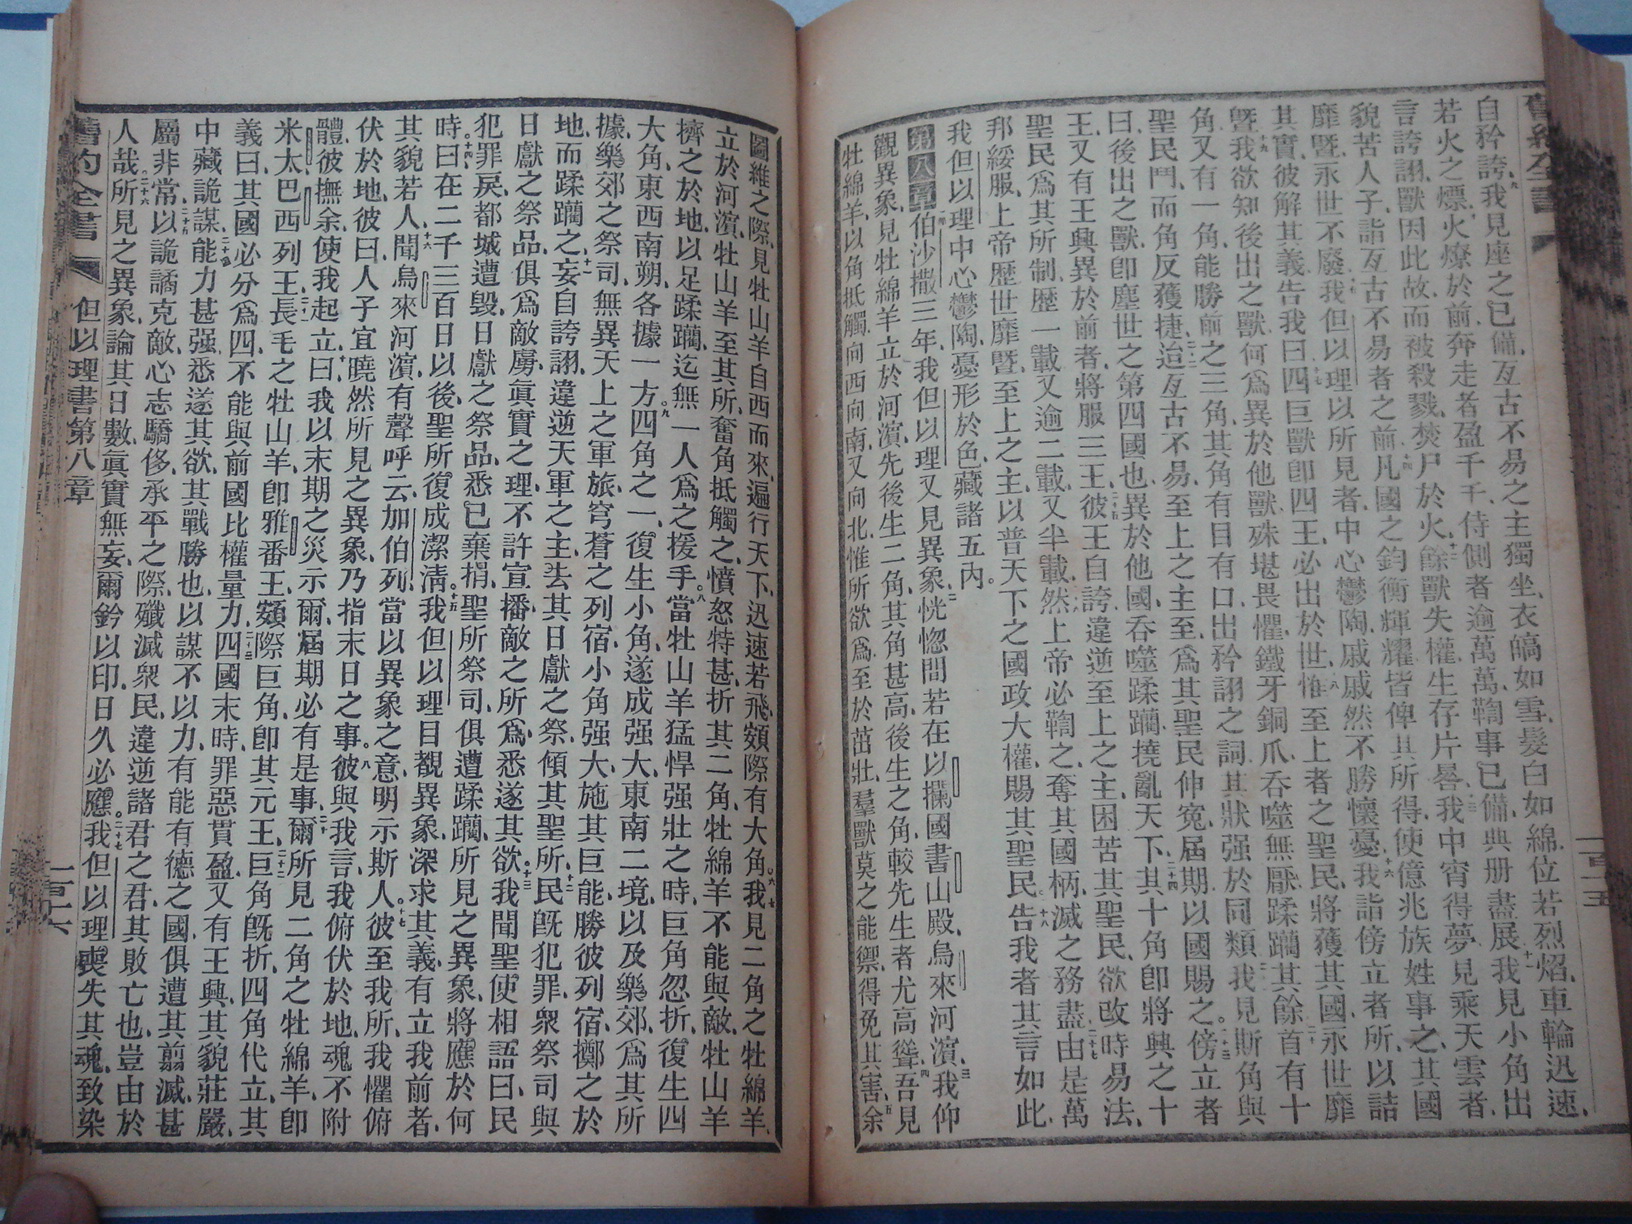 自矜誇、我見座之已備、亙古不易之主獨坐、衣皜如雪、髮白如綿、位若烈焰、車輪迅速、
若火之熛、火燎於前、奔走者盈千千、侍側者逾萬萬、鞫事已備、典册盡展、我見小角出
言誇詡、獸因此故、而被殺戮、焚尸於火、餘獸失權、生存片晷、我中宵得夢、見乘天雲者、
貌若人子、詣亙古不易者之前、凡國之鈞衡輝耀、皆俾其所得、使億兆族姓事之、其國
靡曁、永世不廢、我但以理以所見者、中心鬱陶、戚戚然不勝懷憂、我詣傍立者、所以詰
其實、彼解其義、告我曰、四巨獸卽四王、必出於世、惟至上者之聖民、將獲其國、永世靡
曁、我欲知後出之獸、何爲異於他獸、殊堪畏懼、鐵牙銅爪、吞噬無厭、蹂躪其餘、首有十
角、又有一角、能勝前之三角、其角有目有口、出矜詡之詞、其狀强於同類、我見斯角與
聖民鬥、而角反獲捷、迨亙古不易至上之主至、爲其聖民伸寃、屆期以國賜之。傍立者
曰、後出之獸、卽塵世之第四國也、異於他國、吞噬蹂躪、撓亂天下、其十角卽將興之十
王、又有王興、異於前者、將服三王、彼王自誇、違逆至上之主、困苦其聖民、欲改時易法、
聖民爲其所制、歷一載、又逾二載、又半載、然上帝必鞫之、奪其國柄、滅之務盡、由是萬
邦綏服、上帝歷世靡曁、至上之主、以普天下之國政大權、賜其聖民、告我者其言如此、
我但以理中心鬱陶、憂形於色、藏諸五內。
第八章 伯沙撒三年、我但以理又見異象、恍惚間若在以攔國書山殿、烏來河濱、我仰
觀異象、見牡綿羊立於河濱、先後生二角、其角甚高、後生之角、較先生者尤高聳、吾見
牡綿羊、以角抵觸、向西向南、又向北、惟所欲爲、至於茁壯、羣獸莫之能禦、得免其害、余
圖維之際、見牡山羊自西而來、遍行天下、迅速若飛、額際有大角、我見二角之牡綿羊、
立於河濱、牡山羊至其所、奮角抵觸之、憤怒特甚、折其二角、牡綿羊不能與敵、牡山羊
擠之於地、以足蹂躪、迄無一人爲之援手。當牡山羊猛悍强壯之時、巨角忽折、復生四
大角、東西南朔、各據一方。四角之一、復生小角、遂成强大、東南二境、以及樂郊、爲其所
據、樂郊之祭司、無異天上之軍旅、穹蒼之列宿、小角强大、施其巨能、勝彼列宿、擲之於
地、而蹂躪之、妄自誇詡、違逆天軍之主、去其日獻之祭、傾其聖所、民旣犯罪、衆祭司與
日獻之祭品、俱爲敵虜、眞實之理、不許宣播、敵之所爲、悉遂其欲、我聞聖使相語曰、民
犯罪戾、都城遭毀、日獻之祭品、悉已棄捐、聖所祭司、俱遭蹂躪、所見之異象、將應於何
時。曰、在二千三百日以後、聖所復成潔淸。我但以理目覩異象、深求其義、有立我前者、
其貌若人、聞烏來河濱有聲呼云、加伯列、當以異象之意、明示斯人、彼至我所、我懼俯
伏於地、彼曰、人子宜曉然、所見之異象、乃指末日之事。彼與我言、我俯伏於地、魂不附
體、彼撫余、使我起立、曰、我以末期之災示爾、屆期必有是事、爾所見二角之牡綿羊、卽
米太巴西列王、長毛之牡山羊、卽雅番王、額際巨角、卽其元王、巨角旣折、四角代立、其
義曰、其國必分爲四、不能與前國比權量力、四國末時、罪惡貫盈、又有王興、其貌莊嚴、
中藏詭謀、能力甚强、悉遂其欲、其戰勝也、以謀不以力、有能有德之國、俱遭其翦滅、甚
屬非常、以詭譎克敵、心志驕侈、承平之際、殲滅衆民、違逆諸君之君、其敗亡也、豈由於
人哉、所見之異象、論其日數、眞實無妄、爾鈐以印、日久必應。我但以理喪失其魂、致染
舊約全書 但以理書第八章